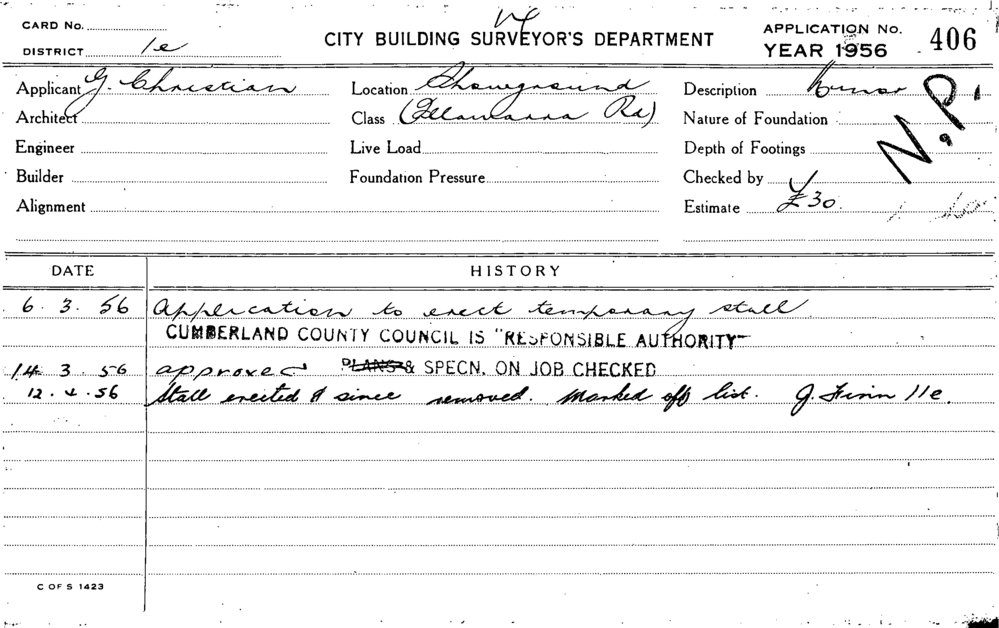 CARD No.
DISTRICT 1e
CITY BUILDING SURVEYOR'S DEPARTMENT
APPLICATION No. 406
YEAR 1956
Applicant G. Christian
Location Showground
Description Minor
N.P.
Architect
Class (Illawarra Rd)
Nature of Foundation
Engineer
Live Load
Depth of Footings
Builder
Foundation Pressure
Checked by
Alignment
Estimate £30
DATE HISTORY
6. 3. 56 Application to erect temporary stall
CUMBERLAND COUNTY COUNCIL IS "RESPONSIBLE AUTHORITY"
14 3 56 approved PLANS & SPECN. ON JOB CHECKED
12. 4. 56 Stall erected & since removed. Marked off list. J. Finn 11e.
C OF S 1423